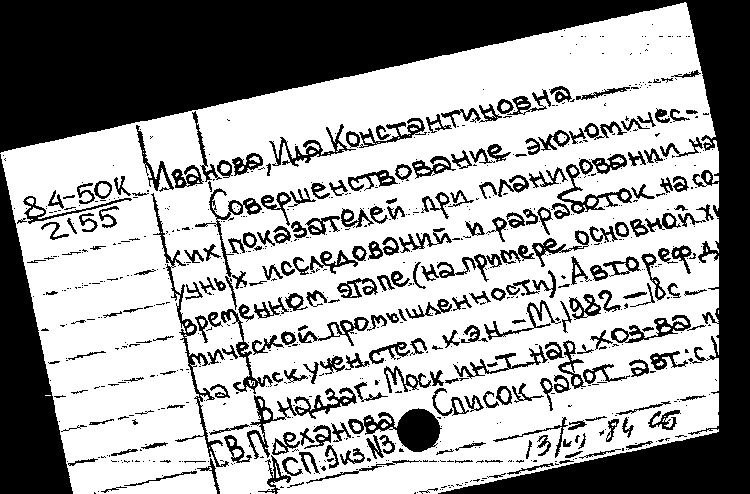 Иванова, Ида Константиновна
84-50К
2155
Совершенствование экономичес-
ких показателей при планировании на-
учных исследований и разработок на со-
временном этапе (на примере основной хи-
мической промышленности). Автореф. д
на соиск. учен. степ. к.э.н. - М., 1982. - 18с.
В надзаг.: Моск. ин-т нар. хоз-ва
Г.В. Плеханова. Список работ авт.: с.
ДСП. Экз. N3.
13/III-84 СБ